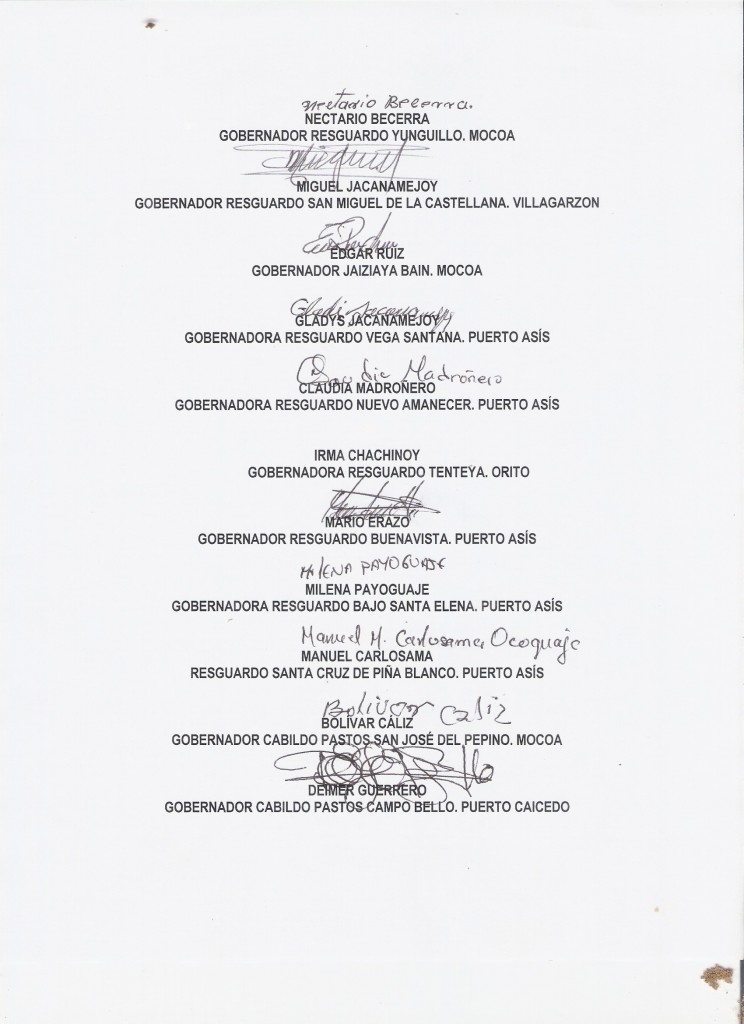 Nectario Becerra.
NECTARIO BECERRA
GOBERNADOR RESGUARDO YUNGUILLO. MOCOA
MIGUEL JACANAMEJOY
GOBERNADOR RESGUARDO SAN MIGUEL DE LA CASTELLANA. VILLAGARZON
EDGAR RUIZ
GOBERNADOR JAIZIAYA BAIN. MOCOA
Gladi Jacanamejoy
GLADYS JACANAMEJOY
GOBERNADORA RESGUARDO VEGA SANTANA. PUERTO ASÍS
Madroñero
CLAUDIA MADROÑERO
GOBERNADORA RESGUARDO NUEVO AMANECER. PUERTO ASÍS
IRMA CHACHINOY
GOBERNADORA RESGUARDO TENTEYA. ORITO
MARIO ERAZO
GOBERNADOR RESGUARDO BUENAVISTA. PUERTO ASÍS
MILENA PAYOGUAJE
MILENA PAYOGUAJE
GOBERNADORA RESGUARDO BAJO SANTA ELENA. PUERTO ASÍS
Manuel M. Carlosama Ocoguaje
MANUEL CARLOSAMA
RESGUARDO SANTA CRUZ DE PIÑA BLANCO. PUERTO ASÍS
Bolivar Caliz
BOLÍVAR CÁLIZ
GOBERNADOR CABILDO PASTOS SAN JOSÉ DEL PEPINO. MOCOA
DEIMER GUERRERO
GOBERNADOR CABILDO PASTOS CAMPO BELLO. PUERTO CAICEDO